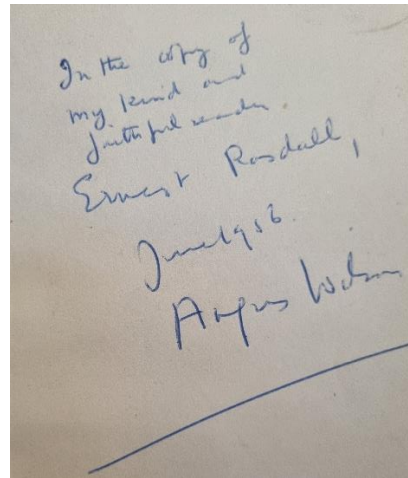 In the copy of
my kind and
faithful reader.
Ernest Rosdall,
June 1956.
Angus Wilson